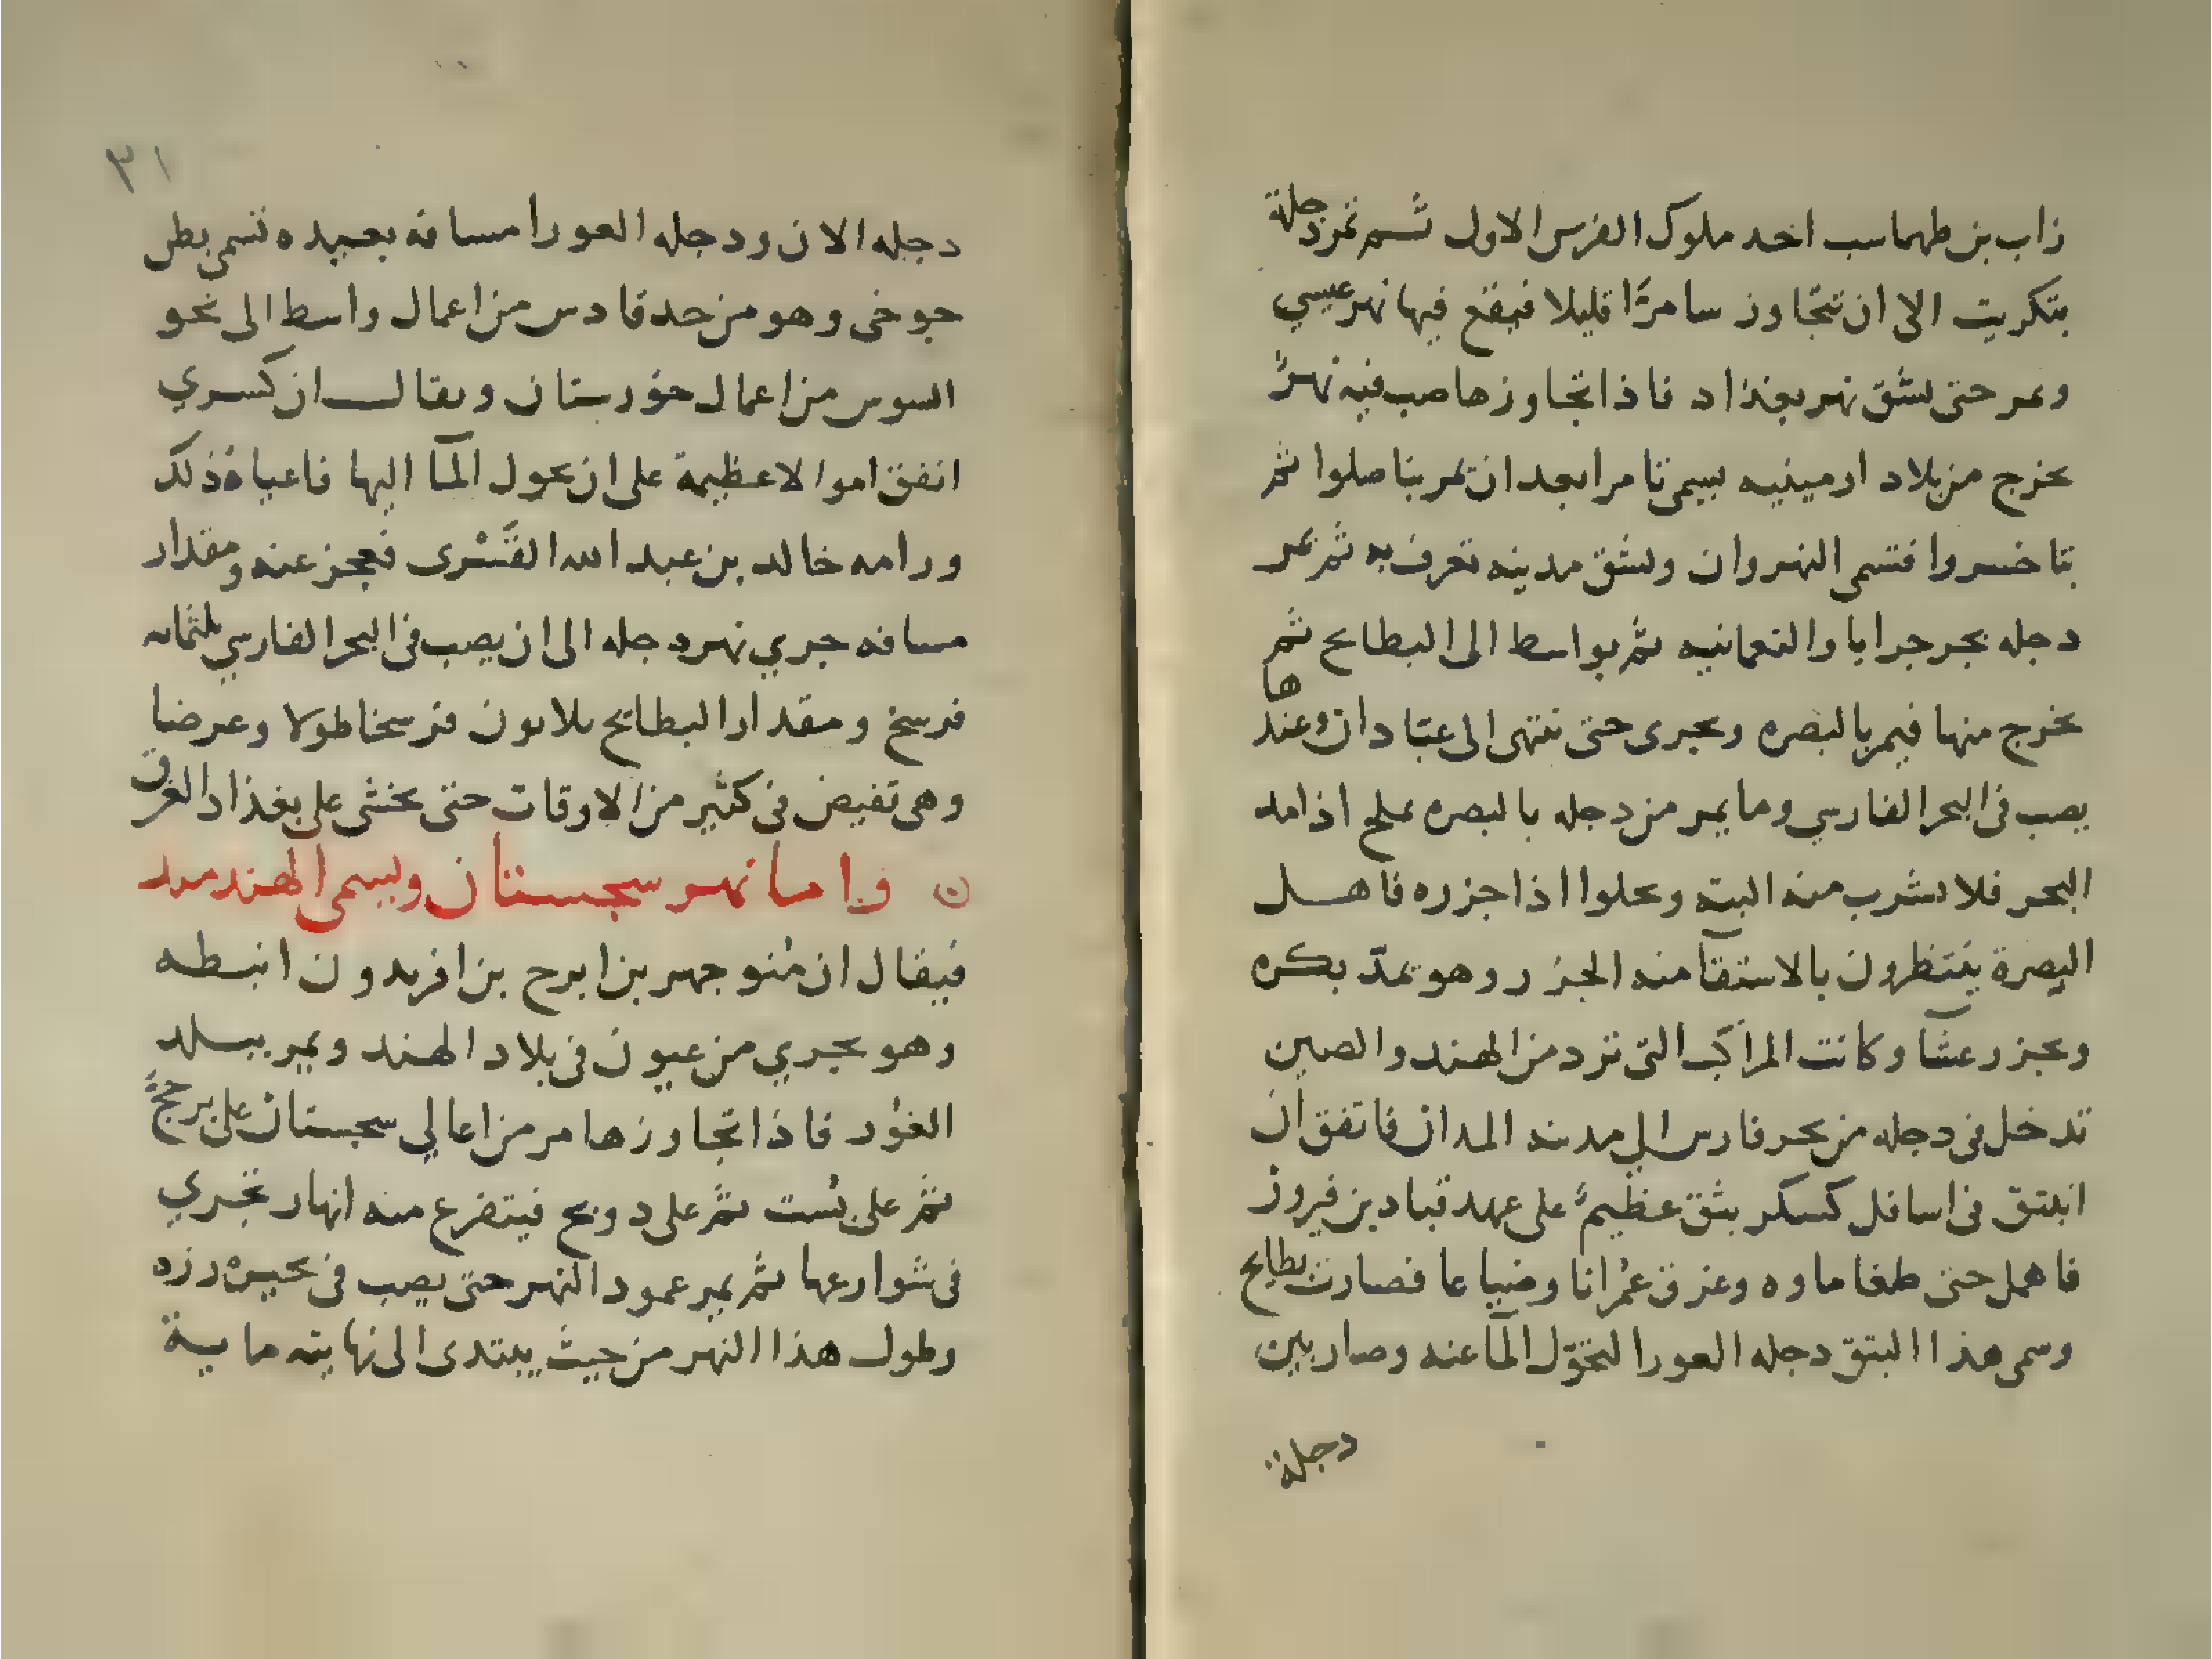 زاب بن طهماسب احد ملوك الفرس الاول ثم تمر دجلة
بتكريت الى ان تتجاوز سامرّا قليلا فيقع فيها نهر عيسي
وىمر حتى ىشق نهر بغداد فاذا تجاوزها صب فيه نهرٌ
يخرج من بلاد ارمينيه يسمى تامرا بعد ان تمر بناصلوا ثم
بتاخسروا فتسمى النهروان وىشق مدينه تعرف به ثم تمر
دجله بجرجرايا والنعمانيه ثم بواسط الى البطايح ثم
يخرج منها فيمر بالبصره ويجرى حتى تنتهى الى عبّادان وعندها
يصب فى البحر الفارسي وما يمر من دجله بالبصره يملح اذا مده
البحر فلا ىشرب منه البته ويحلوا اذا جزره فاهل
البصرة ينتظرون بالاستقآ منه الجزر وهو يمدّ بكره
ويجزر عشآ وكانت المراكب التى ترد من الهند والصين
تدخل فى دجله من بحر فارس الي مدىنه المداىن فاتفق ان
انبثق فى اسافل كسكر بثق عظيمٌ على عهد قباد بن فيروز
فاهمل حتى طغا ماوه وغرق عُمرانا وضياعا فصارت بطايح
وسمى هذا البثق دجله العورا لتحوّل المآ عنه وصار بين
دجلة
٣١
دجله الان ودجله العورا مسافه بعيده تسمى بطن
جوخى وهو من حد قادس من اعمال واسط الى نحو
السوس من اعمال خوزستان وىقال ان كسري
انفق اموالا عظيمة على ان يحول المآ اليها فاعياهُ ذلك
ورامه خالد بن عبد الله القَسْرى فعجز عنه ومقدار
مسافه جري نهر دجله الى ان يصب فى البحر الفارسي ثلثمايه
فرسخ ومقدار البطايح ىلاىون فرسخا طولا وعرضا
وهى تفيض فى كثير من الاوقات حتى يخشى على بغداد الغرق
واما نهر سجستان ويسمى الهندمىد
فيقال ان مُنوجهر بن ايرج بن افريدون انبطه
وهو يجري من عيون فى بلاد الهند ويمر ببلد
الغوُر فاذا تجاوزها مر من اعالي سجستان على برخج
ثمَّ على بُست ثمَّ على دويج فيتفرع منه انهار تجري
فى شوارعها ثم يمر عمود النهر حتى يصب فى بحيره زره
وطول هذا النهر من حيث يبتدى الى نهايته ماية